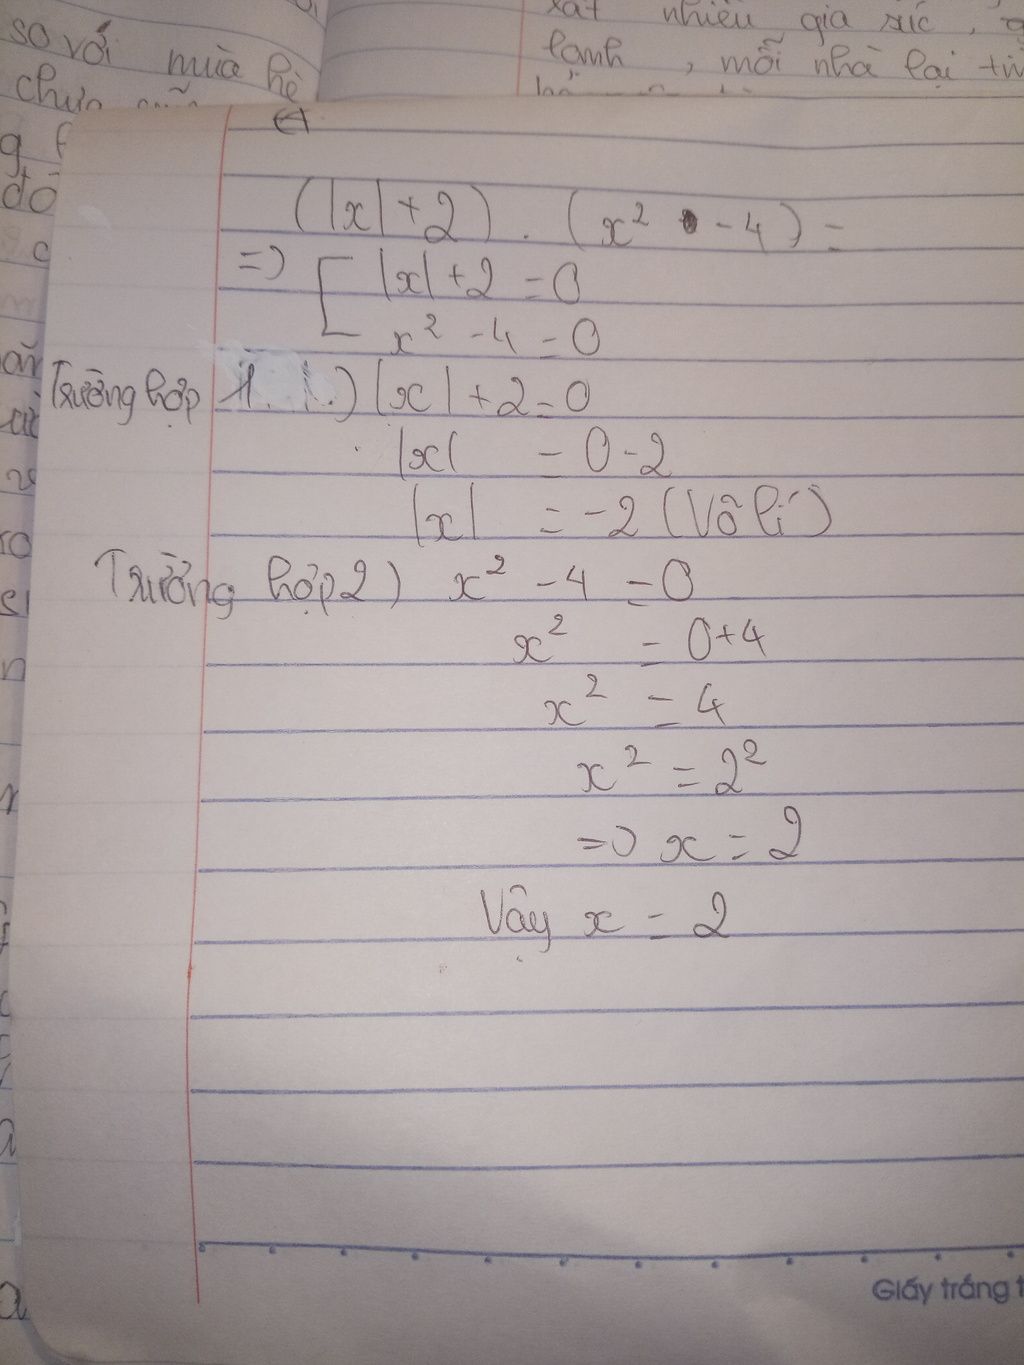 so với mùa hè
chưa
xát nhiều gia súc,
lạnh, mỗi nhà lại
g
đó
(|x| + 2) . (x² - 4) =
=) [ |x| + 2 = 0
x² - 4 = 0
Trường hợp 1.) |x| + 2 = 0
|x| = 0 - 2
|x| = -2 (Vô lí)
Trường hợp 2) x² - 4 = 0
x² = 0 + 4
x² = 4
x² = 2²
=> x = 2
Vậy x = 2
Giấy trắng